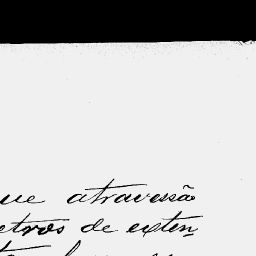 ue atravessão
etros de exten